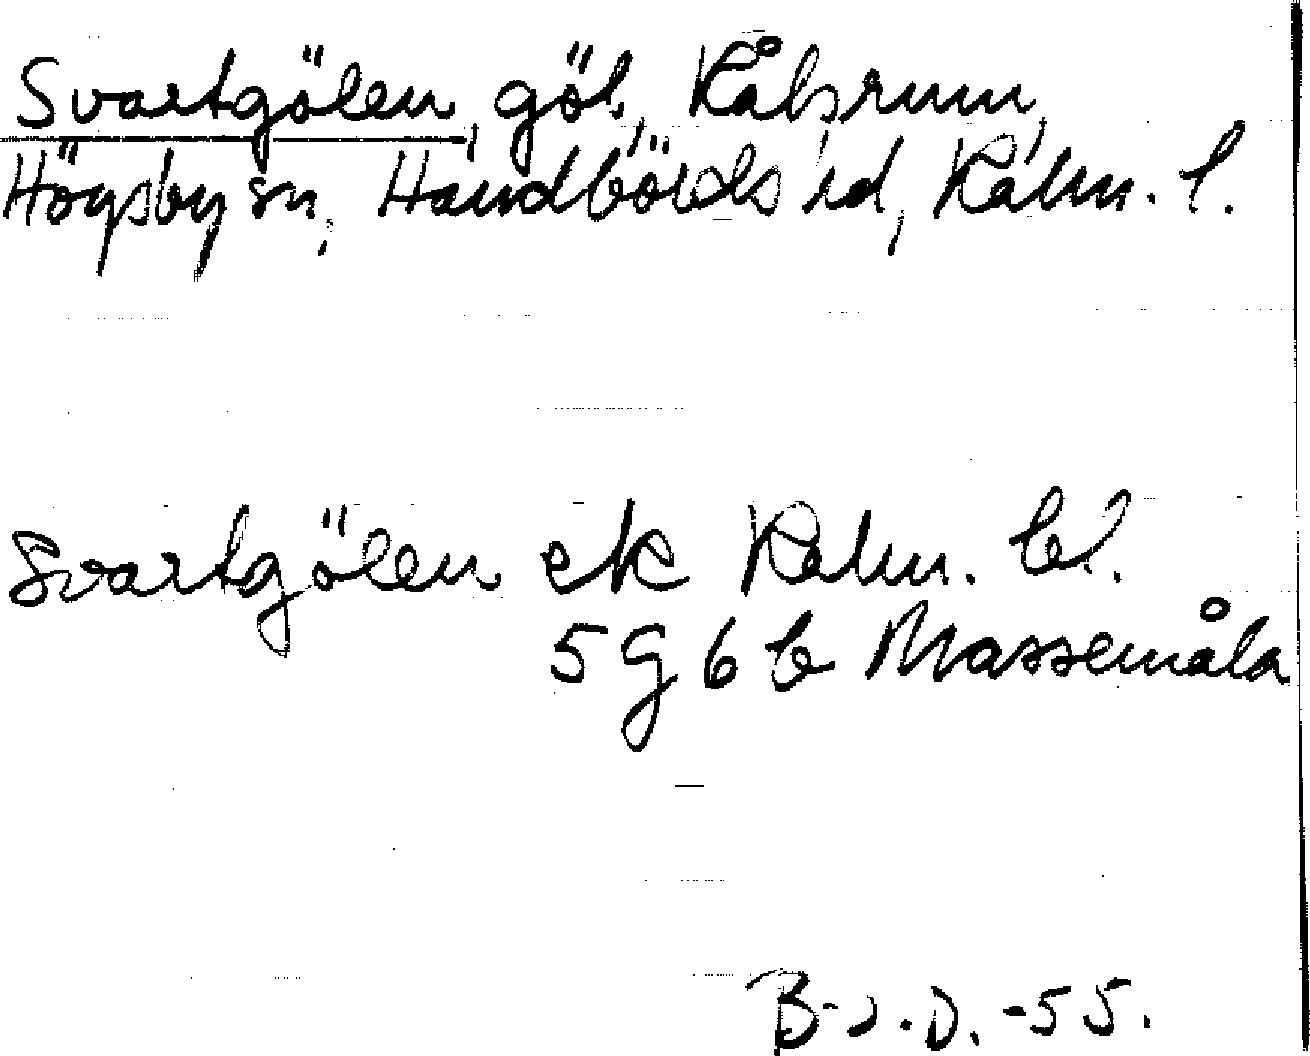 Svartgölen, göl, Kåhsrum,
Högsby sn, Handbörds hd, Kalm. l.
Svartgölen ek Kalm. bl.
5G 6b Massemåla
B-J.D. -55.